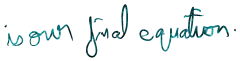 is our final equation.